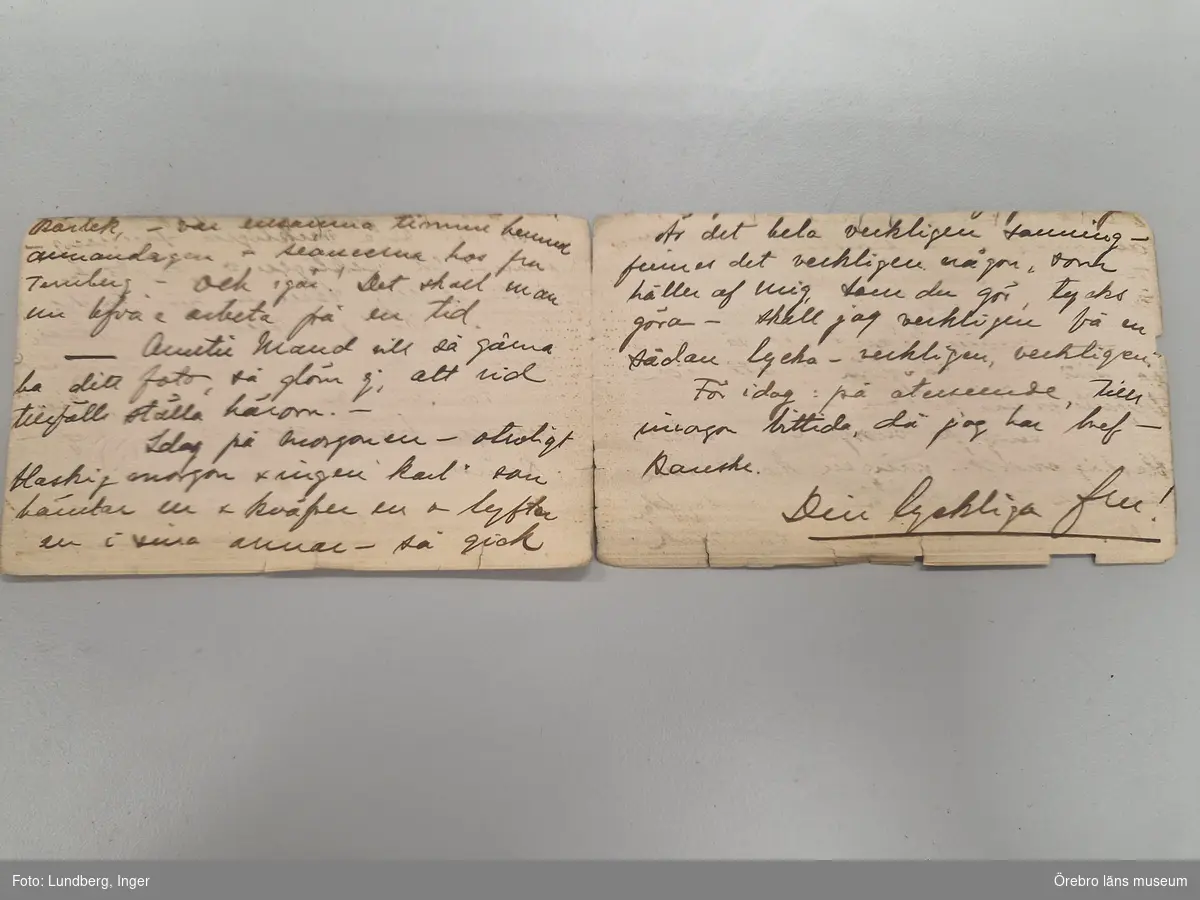 Kärlek, – var timme
annandagen – seancerna hos fru
Ternberg – och igår! Det skall man
nu lefva & arbeta på en tid.
— Maud vill så gärna
ha ditt foto, så glöm ej, att vid
tillfälle ställa härom. –
Idag på morgonen – otroligt
slaskig morgon & ingen "karl" som
hämtar en & kväfver en & lyfter
en i sina armar – så gick
Är det hela verkligen sanning –
finnes det verkligen någon, som
håller af mig, som du gör, tycks
göra – skall jag verkligen få en
sådan lycka – verkligen, verkligen.
För idag: på återseende, till
imorgon bittida, då jag har bref –
kanske.
Din lyckliga fru!
Foto: Lundberg, Inger
Örebro läns museum